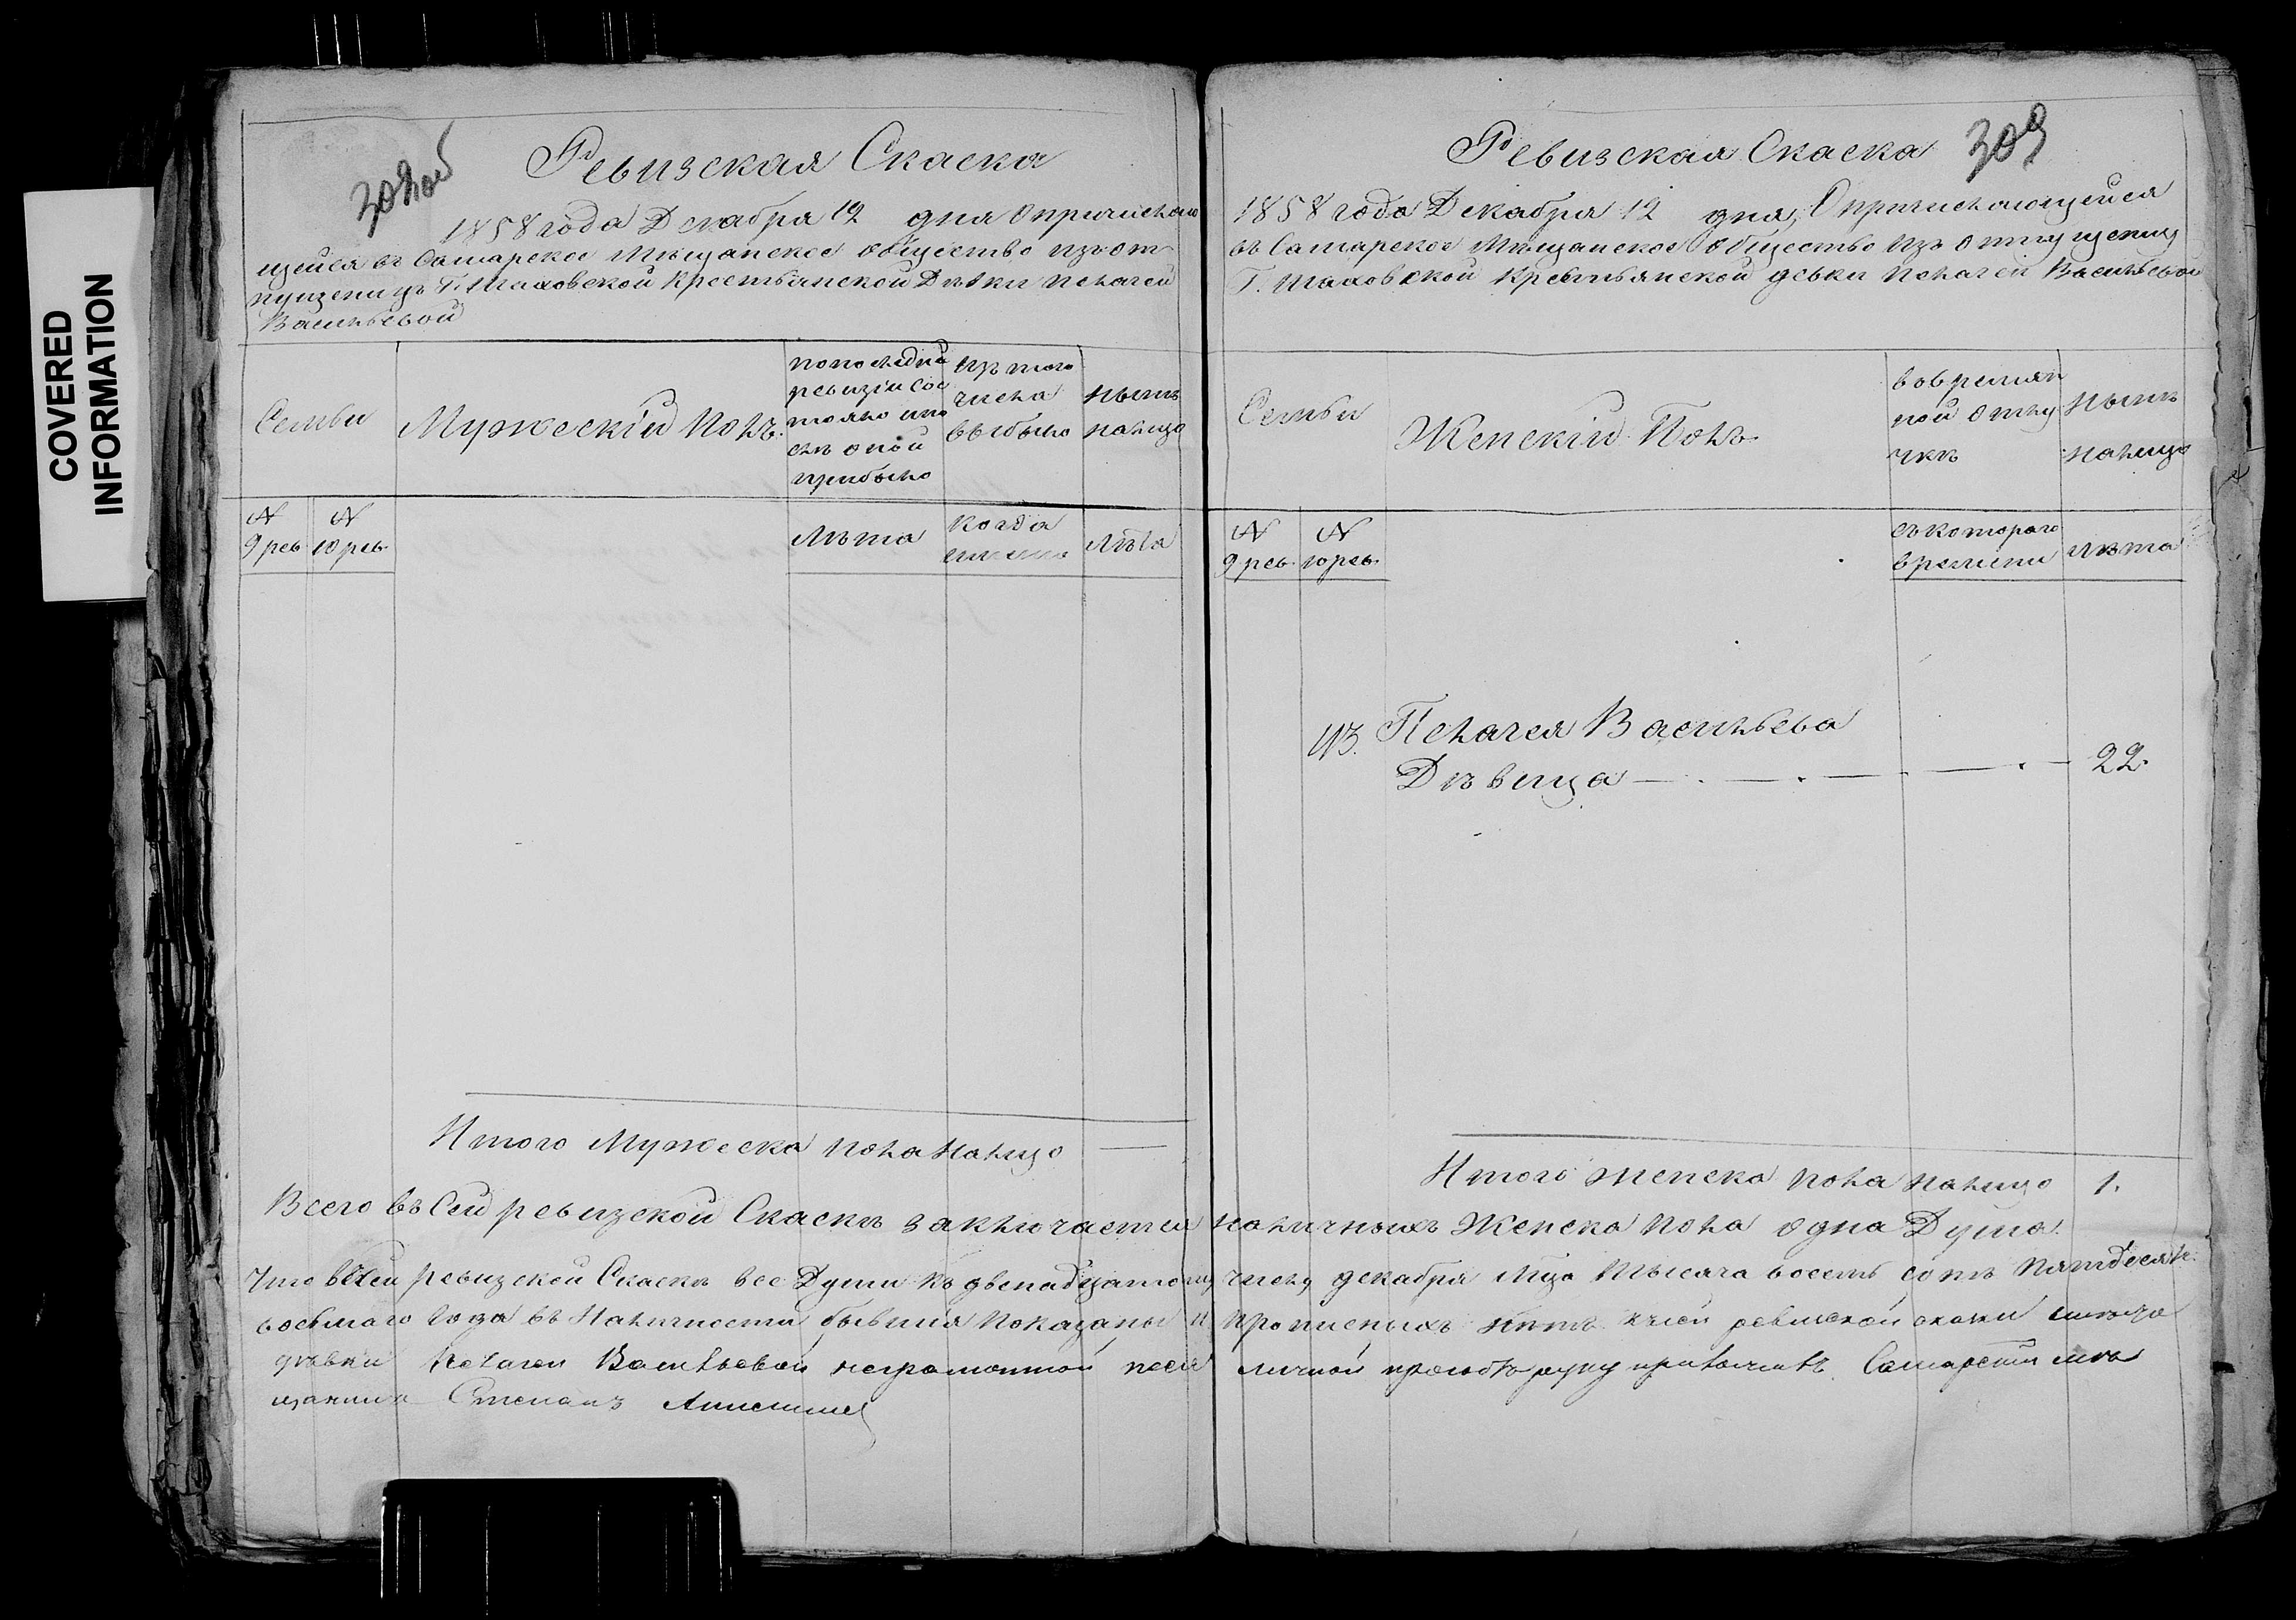 COVERED
INFORMATION
308 об
Ревизская Скаска
1858 года Декабря 12 дня О причисляю
щейся въ Самарское Мѣщанское общество изъ от
пущеницъ Г. Шаховской Крестьянской Дѣвки Пелагеи
Васильевой
Семьи
Мужескій Полъ.
по последней
ревизіи сос
тояло и по
слѣ оной
прибыло
Изъ того
числа
выбыло
Нынѣ
налицо
№
9 рев
№
10 рев.
Лѣта
Когда
именно
Лѣта
Итого Мужеска пола налицо —
Ревизская Скаска
309
1858 года Декабря 12 дня, О причисляющейся
въ Самарское Мѣщанское общество изъ отпущениц
Г. Шаховской Крестьянской девки Пелагеи Васильевой
Семьи
Женскій Полъ
во времян
ной отлу
чкѣ
Нынѣ
налицо
№
9 рев.
№
10 рев.
съ котораго
времени
лѣта
113. Пелагея Васильева
Дѣвица — . — . — . — . — 22.
Итого женска пола налицо 1.
Всего въ Сей ревизской Скаскѣ заключается наличныхъ Женска пола одна Душа.
Что в сей ревизской Скаскѣ все Души къ двенадцатому числу декабря Мца Тысяча восемь сотъ пятдесятъ
восьмаго года въ Наличности бывшія показаны и прописныхъ нѣтъ. к сей ревиской скаски вместо
дѣвки Пелагеи Васильевой неграмотной по ея личной прозьбѣ руку приложилъ Самарскій мѣ
щанинъ Степанъ